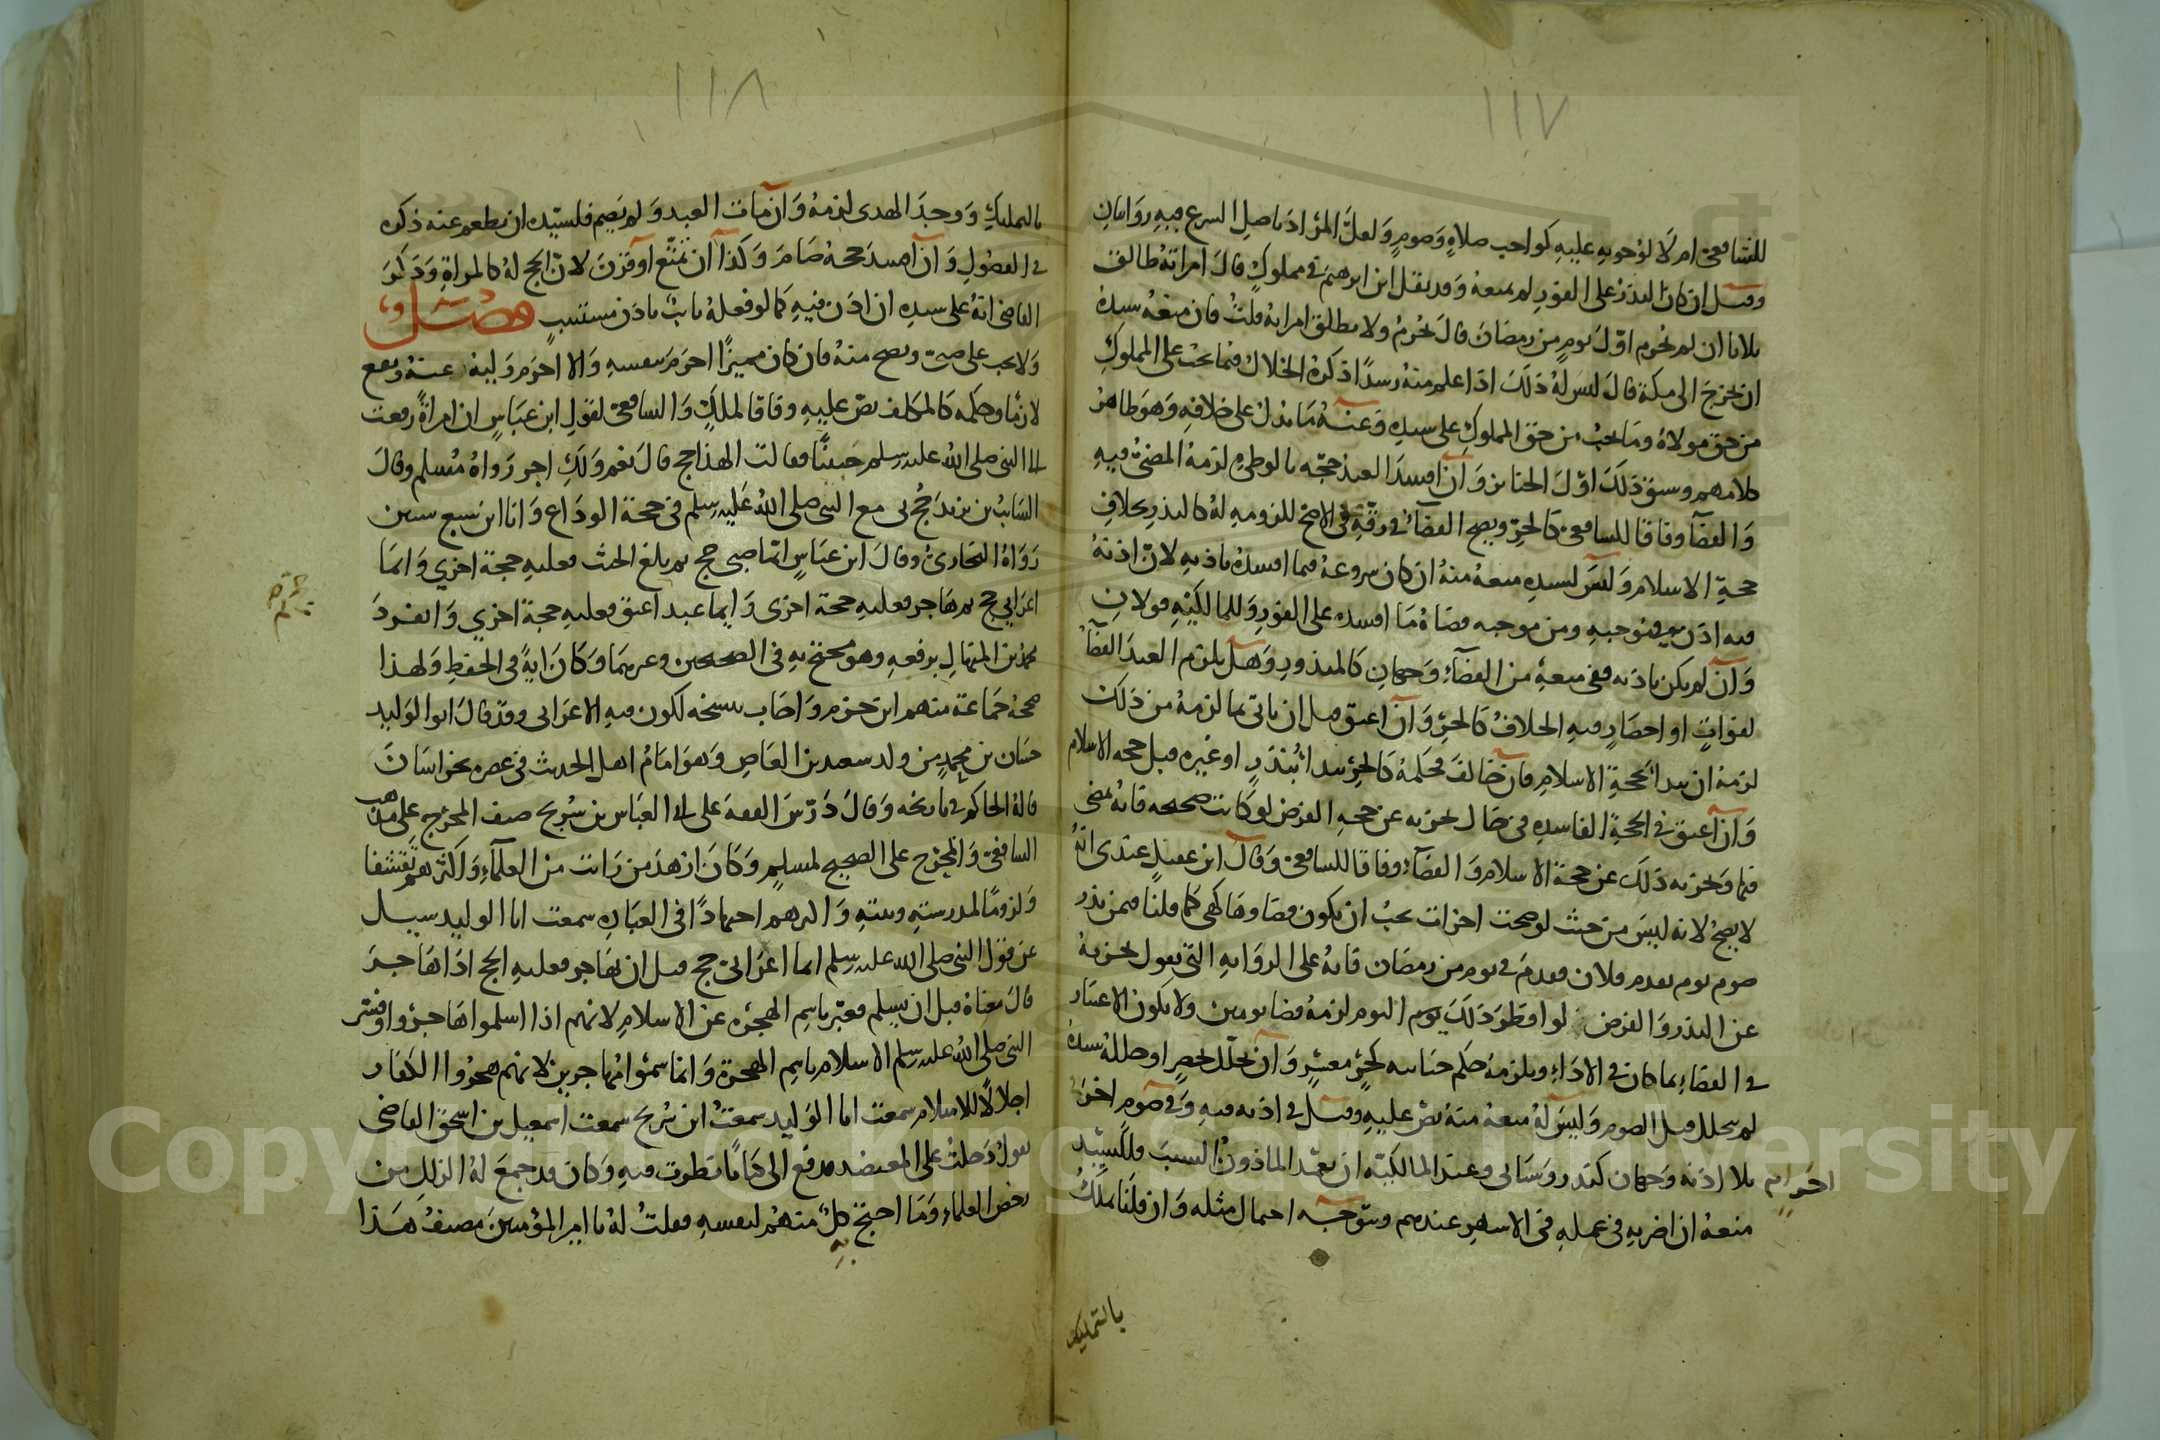 ١١٧
للشافعي ام لا لوجوبه عليه كواجب صلاة وصوم ولعل المراد باصل الشرع فيه روايتان
وقيل ان كان النذر على الفور لم يمنعه وقد نقل ابن ابرهيم في مملوك قال امراته طالق
ثلاثا ان لم يحرم اول يوم من رمضان قال يحرم ولا تطلق امراته قلت فان منعه سيده
ان يخرج الى مكة قال ليس له ذلك اذا علم منه رشدا ذكره الخلال فيما يجب على المملوك
من حق مولاه وما يجب من حق المملوك على سيده وعنه ما يدل على خلافه وهو ظاهر
كلامهم وسبق ذلك اول الجنائز وان افسد العبد حجه بالوطء لزمه المضي فيه
والقضا وفاقا للشافعي كالحر ويصح القضاء في رقه في الاصح للزومه له كالنذر بخلاف
حجة الاسلام وليس لسيده منعه منه ان كان شروعه فيما افسده باذنه لان اذنه
فيه اذن في موجبه ومن موجبه قضاء ما افسده على الفور وللمالكية قولان
وان لم يكن باذنه ففي منعه من القضاء وجهان كالمنذور وهل يلزم العبد القضاء
لفوات او احصار فيه الخلاف كالحر وان اعتق قبل ان ياتي بما لزمه من ذلك
لزمه ان يبدا بحجة الاسلام فان خالف فحكمه كالحر يبدا بنذر او غيره قبل حجة الاسلام
وان اعتق في الحجة الفاسدة في حال يجزيه عن حجة الفرض لو كانت صحيحة فانه يمضي
فيها ويجزيه ذلك عن حجة الاسلام والقضاء وفاقا للشافعي وقال ابن عقيل عندي انه
لا يصح لانه ليس من حيث لو صحت اجزات يجب ان يكون قضاوها كهي كما قلنا فيمن نذر
صوم يوم يقدم فلان فقدم في يوم من رمضان فانه على الرواية التي تقول يجزيه
عن النذر والفرض لو افطر ذلك اليوم لزمه قضا يومين ولا يكون الاعتبار
في القضاء بما كان في الاداء ويلزمه حكم جنايته كحر معسر وان تحلل لحصر او حلله سيده
لم يتحلل قبل الصوم وليس له منعه منه نص عليه وقيل في اذنه فيه وفي صوم اخر
احرام بلا اذنه وجهان كنذر وسياتي وعند المالكية ان تعمد الماذون السبب فللسيد
منعه ان اضر به في عمله في الاشهر عندهم ويتوجه احتمال مثله وان قلنا يملك
بالتمليك
١١٨
بالتمليك ووجد الهدي لزمه وان مات العبد ولم يصم فلسيده ان يطعم عنه ذكره
في الفصول وان افسد حجه صام وكذا ان تمتع او قرن لان الحج له كالمراة وذكر
القاضي انه على سيده ان اذن فيه كما لو فعله نايب باذن مستنيب فصل
ولا يجب على صبي ويصح منه فان كان مميزا احرم بنفسه والا احرم وليه عنه ويقع
لازما وحكمه كالمكلف نص عليه وفاقا لملك والشافعي لقول ابن عباس ان امراة رفعت
الى النبي صلى الله عليه وسلم صبيا فقالت الهذا حج قال نعم ولك اجر رواه مسلم وقال
السائب بن يزيد حج بي مع النبي صلى الله عليه وسلم في حجة الوداع وانا ابن سبع سنين
رواه البخاري وقال ابن عباس ايما صبي حج ثم بلغ الحنث فعليه حجة اخري وايما
اعرابي حج ثم هاجر فعليه حجة اخرى وايما عبد اعتق فعليه حجة اخري وانفرد
محمد بن المنهال برفعه وهو محتج به في الصحيحين وغيرهما وكان اية في الحفظ ولهذا
صححه جماعة منهم ابن حزم واجاب بنسخه لكون فيه الاعرابي وقد قال ابو الوليد
حسان بن محمد من ولد سعيد بن العاص وهو امام اهل الحديث في عصره بخراسان
قاله الحاكم في تاريخه وقال درس الفقه على ابي العباس بن سريج صنف المخرج على مذهب
الشافعي والمخرج على الصحيح لمسلم وكان ازهد من رايت من العلماء واكثرهم تقشفا
ولزوما لمدرسته وبيته واكثرهم اجتهادا في العبادة سمعت ابا الوليد سيل
عن قول النبي صلى الله عليه وسلم ايما اعرابي حج قبل ان يهاجر فعليه الحج اذا هاجر
قال معناه قبل ان يسلم فعبر باسم الهجرة عن الاسلام لانهم اذا اسلموا هاجروا وفسر
النبي صلى الله عليه وسلم الاسلام باسم الهجرة وانما سموا مهاجرين لانهم هجروا الكفار
اجلالا للاسلام سمعت ابا الوليد سمعت ابن سريج سمعت اسمعيل بن اسحق القاضي
يقول دخلت على المعتضد فدفع الي كتابا فنظرت فيه وكان قد جمع له الزلل من
رخص العلماء وما احتج به كل منهم لنفسه فقلت له يا امير المؤمنين مصنف هذا